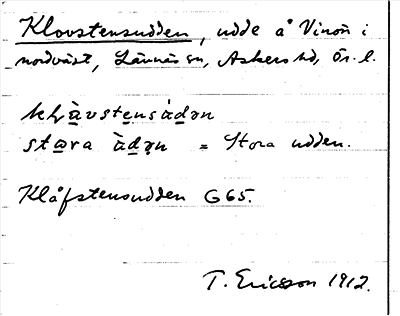 Klovstensudden, udde å Vinön i
nordväst, Lännäs sn, Askers hd, Ör. l.
stora = Stora udden.
Klåfstensudden G65.
T. Ericsson 1912.